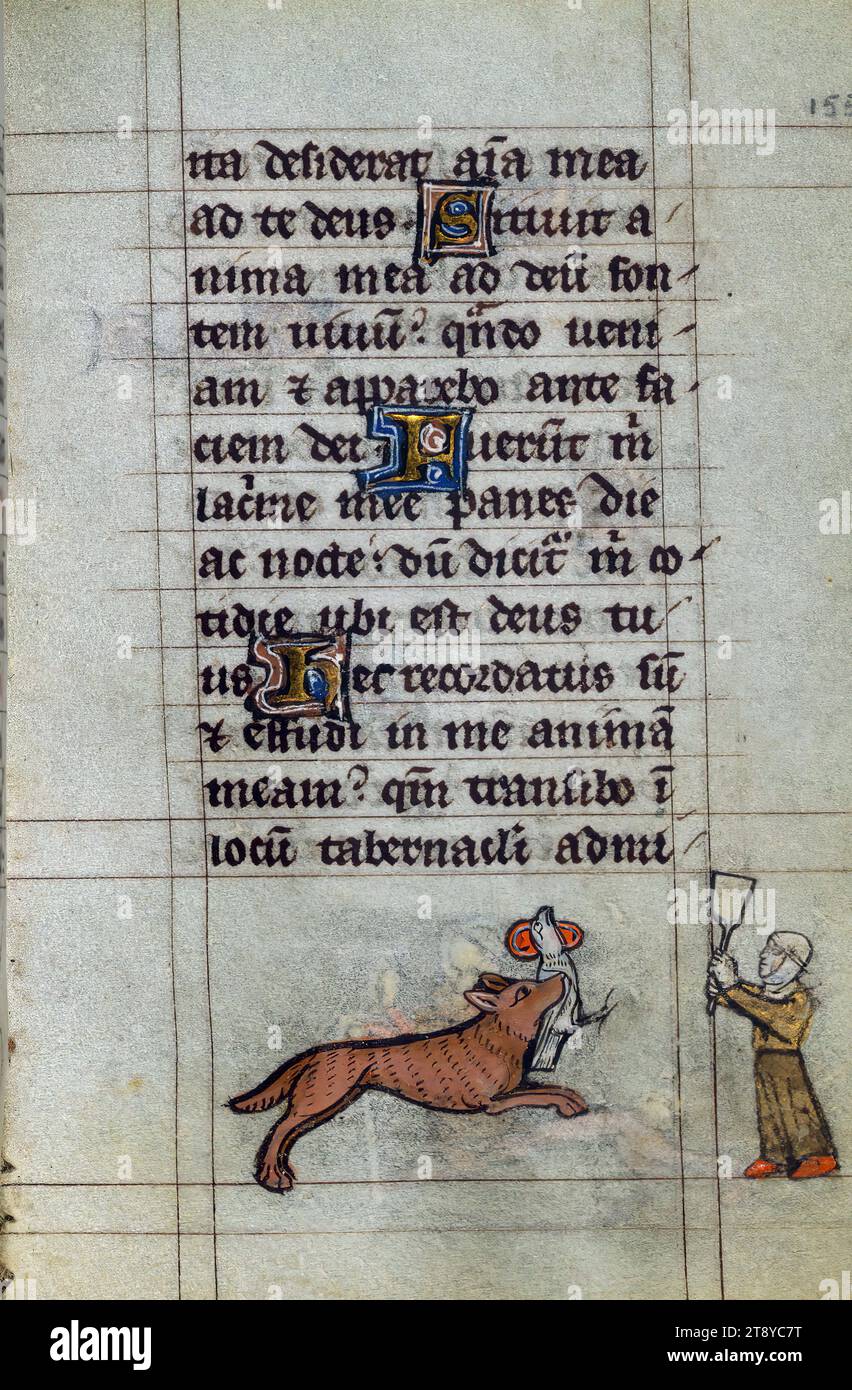 155
ita desiderat aīa mea
ad te deus. Sitiuit a
nima mea ad deū fon
tem uiuū? qn̄do ueni
am ⁊ apparebo ante fa
ciem dei. Fuerūt m̄
lac̄me mee panes die
ac nocte: dū dicit̄ m̄ co
tidie ubi est deus tu
us Hec recordatus sū
⁊ effudi in me animā
meam? qm̄ transibo ī
locū tabernacli admi
alamy
Image ID: 2T8YC7T
www.alamy.com